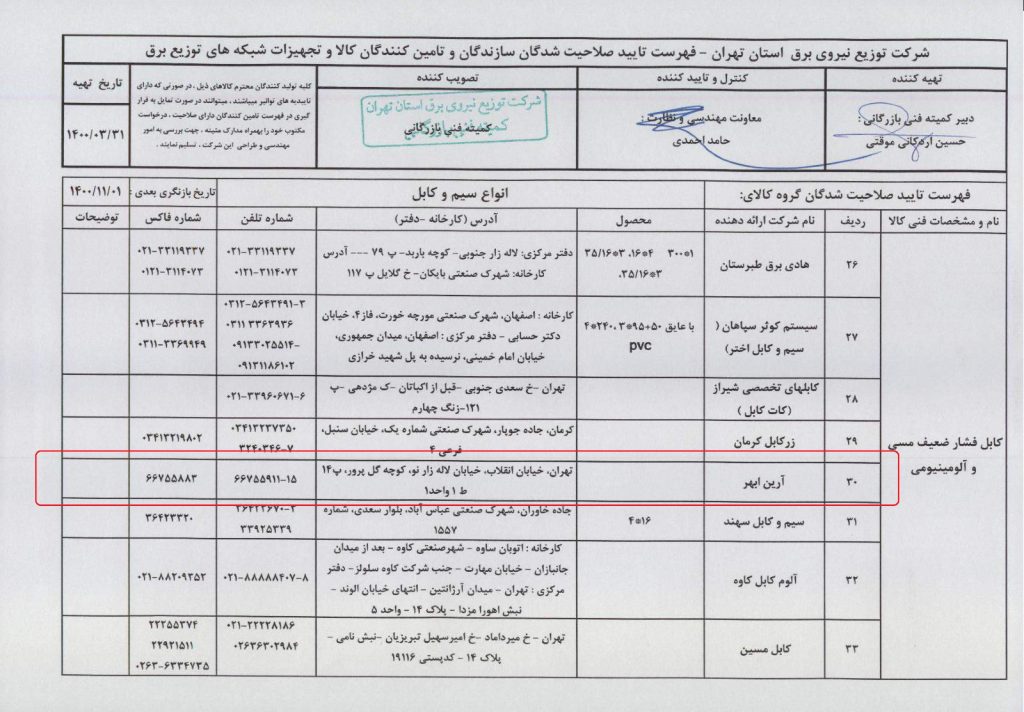 شرکت توزیع نیروی برق استان تهران - فهرست تایید صلاحیت شدگان سازندگان و تامین کنندگان کالا و تجهیزات شبکه های توزیع برق
تهیه کننده
کنترل و تایید کننده
تصویب کننده
کلیه تولید کنندگان محترم کالاهای ذیل ، در صورتی که دارای
تاییدیه های توانیر میباشند، میتوانند در صورت تمایل به قرار
گیری در فهرست تامین کنندگان دارای صلاحیت ، درخواست
مکتوب خود را بهمراه مدارک مثبته ، جهت بررسی به امور
مهندسی و طراحی این شرکت ، تسلیم نمایند .
تاریخ تهیه
دبیر کمیته فنی بازرگانی :
حسین اردکانی موقتی
معاونت مهندسی و نظارت :
حامد احمدی
شرکت توزیع نیروی برق استان تهران
کمیته فنی بازرگانی
۱۴۰۰/۰۳/۳۱
فهرست تایید صلاحیت شدگان گروه کالای: انواع سیم و کابل تاریخ بازنگری بعدی : ۱۴۰۰/۱۱/۰۱
نام و مشخصات فنی کالا ردیف نام شرکت ارائه دهنده محصول آدرس (کارخانه -دفتر) شماره تلفن شماره فاکس توضیحات
کابل فشار ضعیف مسی
و آلومینیومی
۲۶
هادی برق طبرستان
۱*۳۰۰ ۴*۱۶، ۳*۳۵/۱۶
۳*۳۵/۱۶،
دفتر مرکزی: لاله زار جنوبی- کوچه باربد- پ ۷۹ --- آدرس
کارخانه: شهرک صنعتی بایکان- خ گلایل پ ۱۱۷
۰۲۱-۳۳۱۱۹۳۳۷
۰۱۲۱-۳۱۱۴۰۷۳
۰۲۱-۳۳۱۱۹۳۳۷
۰۱۲۱-۳۱۱۴۰۷۳
۲۷
سیستم کوثر سپاهان (
سیم و کابل اختر)
۴*۲۴۰، ۳*۹۵+۵۰ با عایق
pvc
کارخانه : اصفهان، شهرک صنعتی مورچه خورت، فاز۴، خیابان
دکتر حسابی - دفتر مرکزی : اصفهان، میدان جمهوری،
خیابان امام خمینی، نرسیده به پل شهید خرازی
۰۳۱۲-۵۶۴۳۴۹۱-۳
۰۳۱۱ ۳۳۶۳۹۳۶
۰۹۱۳۳۰۲۵۵۱۴-
۰۹۱۳۱۱۸۶۱۰۲
۰۳۱۲-۵۶۴۳۴۹۴
۰۳۱۱-۳۳۶۹۹۴۹
۲۸
کابلهای تخصصی شیراز
(کات کابل )
تهران -خ سعدی جنوبی -قبل از اکباتان -ک مژدهی -پ
۱۲۱-زنگ چهارم
۰۲۱-۳۳۹۶۰۶۷۱-۶
۲۹
زرکابل کرمان
کرمان، جاده جوپار، شهرک صنعتی شماره یک، خیابان سنبل،
فرعی ۴
۰۳۴۱۳۲۳۷۳۵۰
۳۲۴۰۳۴۶-۷
۰۳۴۱۳۲۱۹۸۰۲
۳۰
آرین ابهر
تهران، خیابان انقلاب، خیابان لاله زار نو، کوچه گل پرور، پ۱۴
ط ۱ واحد۱
۶۶۷۵۵۹۱۱-۱۵
۶۶۷۵۵۸۸۳
۳۱
سیم و کابل سهند
۴*۱۶
جاده خاوران، شهرک صنعتی عباس آباد، بلوار سعدی، شماره
۱۵۵۷
۳۶۴۲۲۶۷۰-۲
۳۳۹۲۵۳۳۹
۳۶۴۲۳۳۲۰
۳۲
آلوم کابل کاوه
کارخانه : اتوبان ساوه - شهرصنعتی کاوه - بعد از میدان
جانبازان - خیابان مهارت - جنب شرکت کاوه سلولز - دفتر
مرکزی : تهران - میدان آرژانتین - انتهای خیابان الوند -
نبش اهورا مزدا - پلاک ۱۴ - واحد ۵
۰۲۱-۸۸۸۸۸۴۰۷-۸
۰۲۱-۸۸۲۰۹۳۵۲
۳۳
کابل مسین
تهران - خ میرداماد -خ امیرسهیل تبریزیان -نبش نامی -
پلاک ۱۴ - کدپستی ۱۹۱۱۶
۰۲۱-۲۲۲۲۸۱۸۶
۰۲۶۳۶۳۰۲۹۸۴
۲۲۲۵۵۳۷۴
۲۲۹۲۱۵۱۱
۰۲۶۳-۶۳۳۴۷۳۵